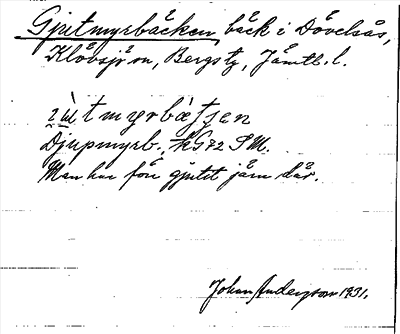 Gjutmyrbäcken bäck i Dövelsås,
Klövsjö sn, Bergs tg, Jämtl. l.
Djupmyrb., kG72 SM.
Man har förr gjutit järn där.
Johan Anderzon 1931.